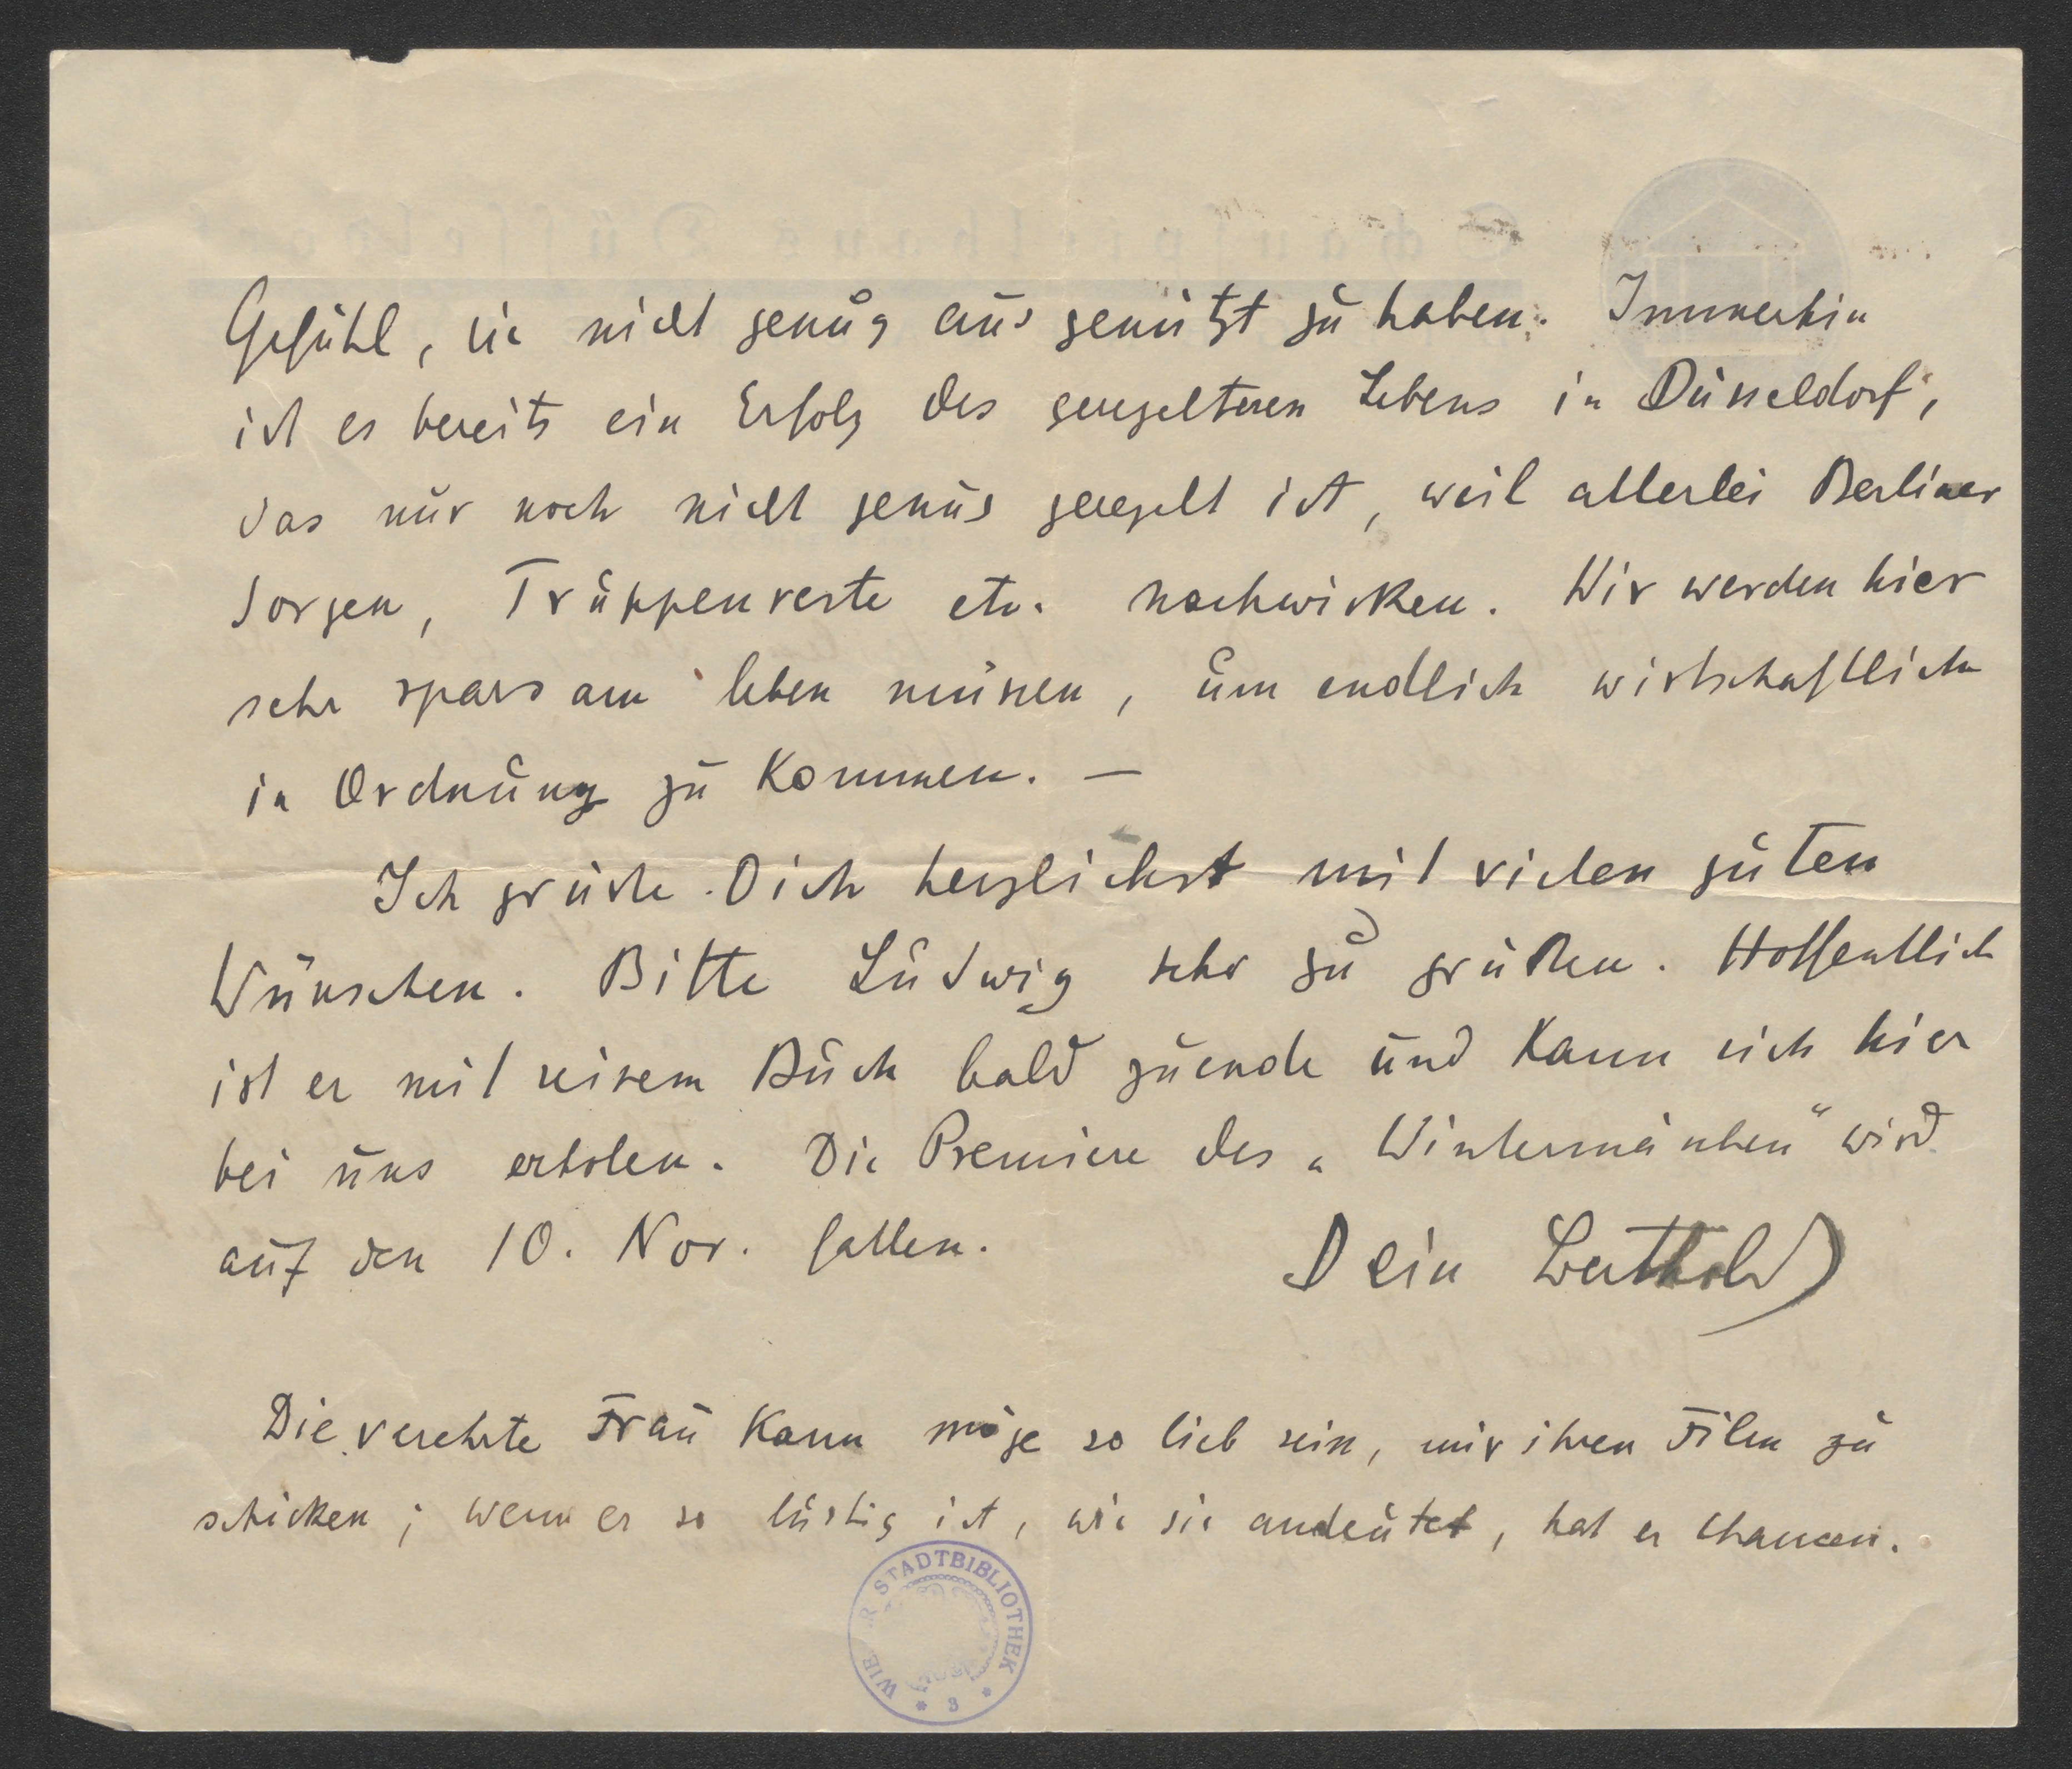 Schauspielhaus Düsseldorf
Gefühl, sie nicht genug ausgenützt zu haben. Immerhin
ist es bereits ein Erfolg des geregelteren Lebens in Düsseldorf,
das nur noch nicht genug geregelt ist, weil allerlei Berliner
Sorgen, Truppenreste etc. nachwirken. Wir werden hier
sehr sparsam leben müssen, um endlich wirtschaftlich
in Ordnung zu kommen. —
Ich grüsse Dich herzlichst mit vielen guten
Wünschen. Bitte Ludwig sehr zu grüßen. Hoffentlich
ist er mit seinem Buch bald zuende und kann sich hier
bei uns erholen. Die Premiere des „Wintermärchen“ wird
auf den 10. Nov. fallen.
Dein Berthold
Die verehrte Frau Kann möge so lieb sein, mir ihren Film zu
schicken; wenn er so lustig ist, wie sie andeutet, hat er Chancen.
WIENER STADTBIBLIOTHEK
* 3 *